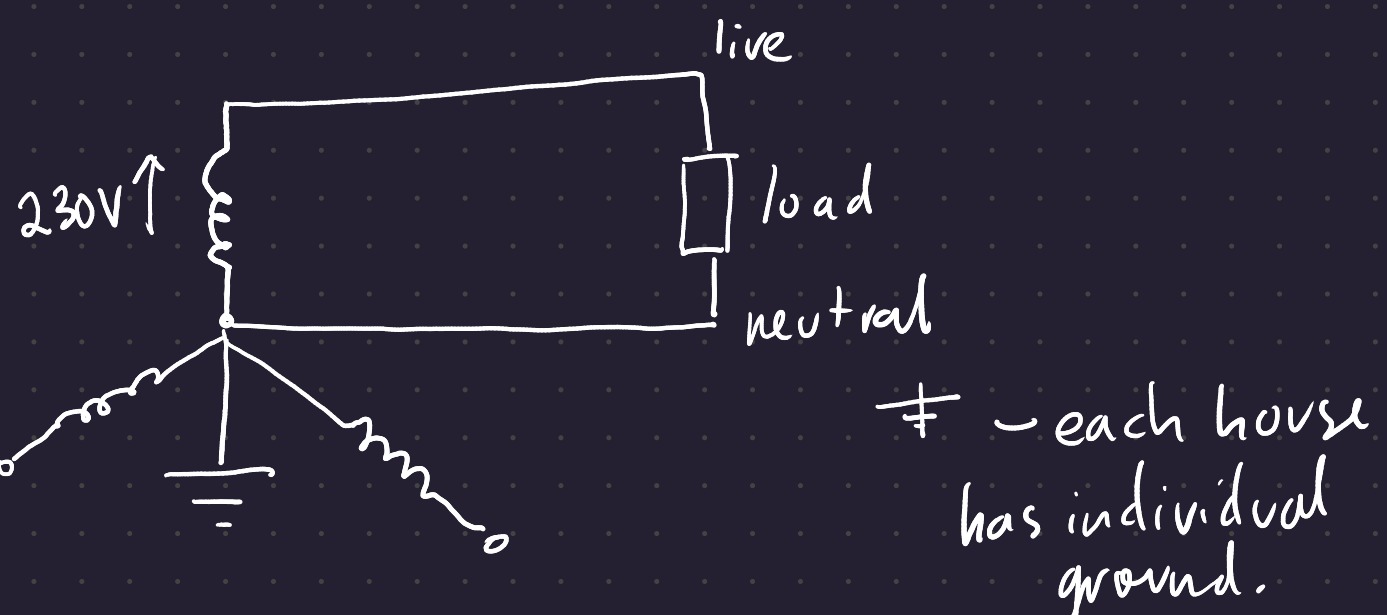 live
230V↑
load
neutral
⏚ – each house
has individual
ground.